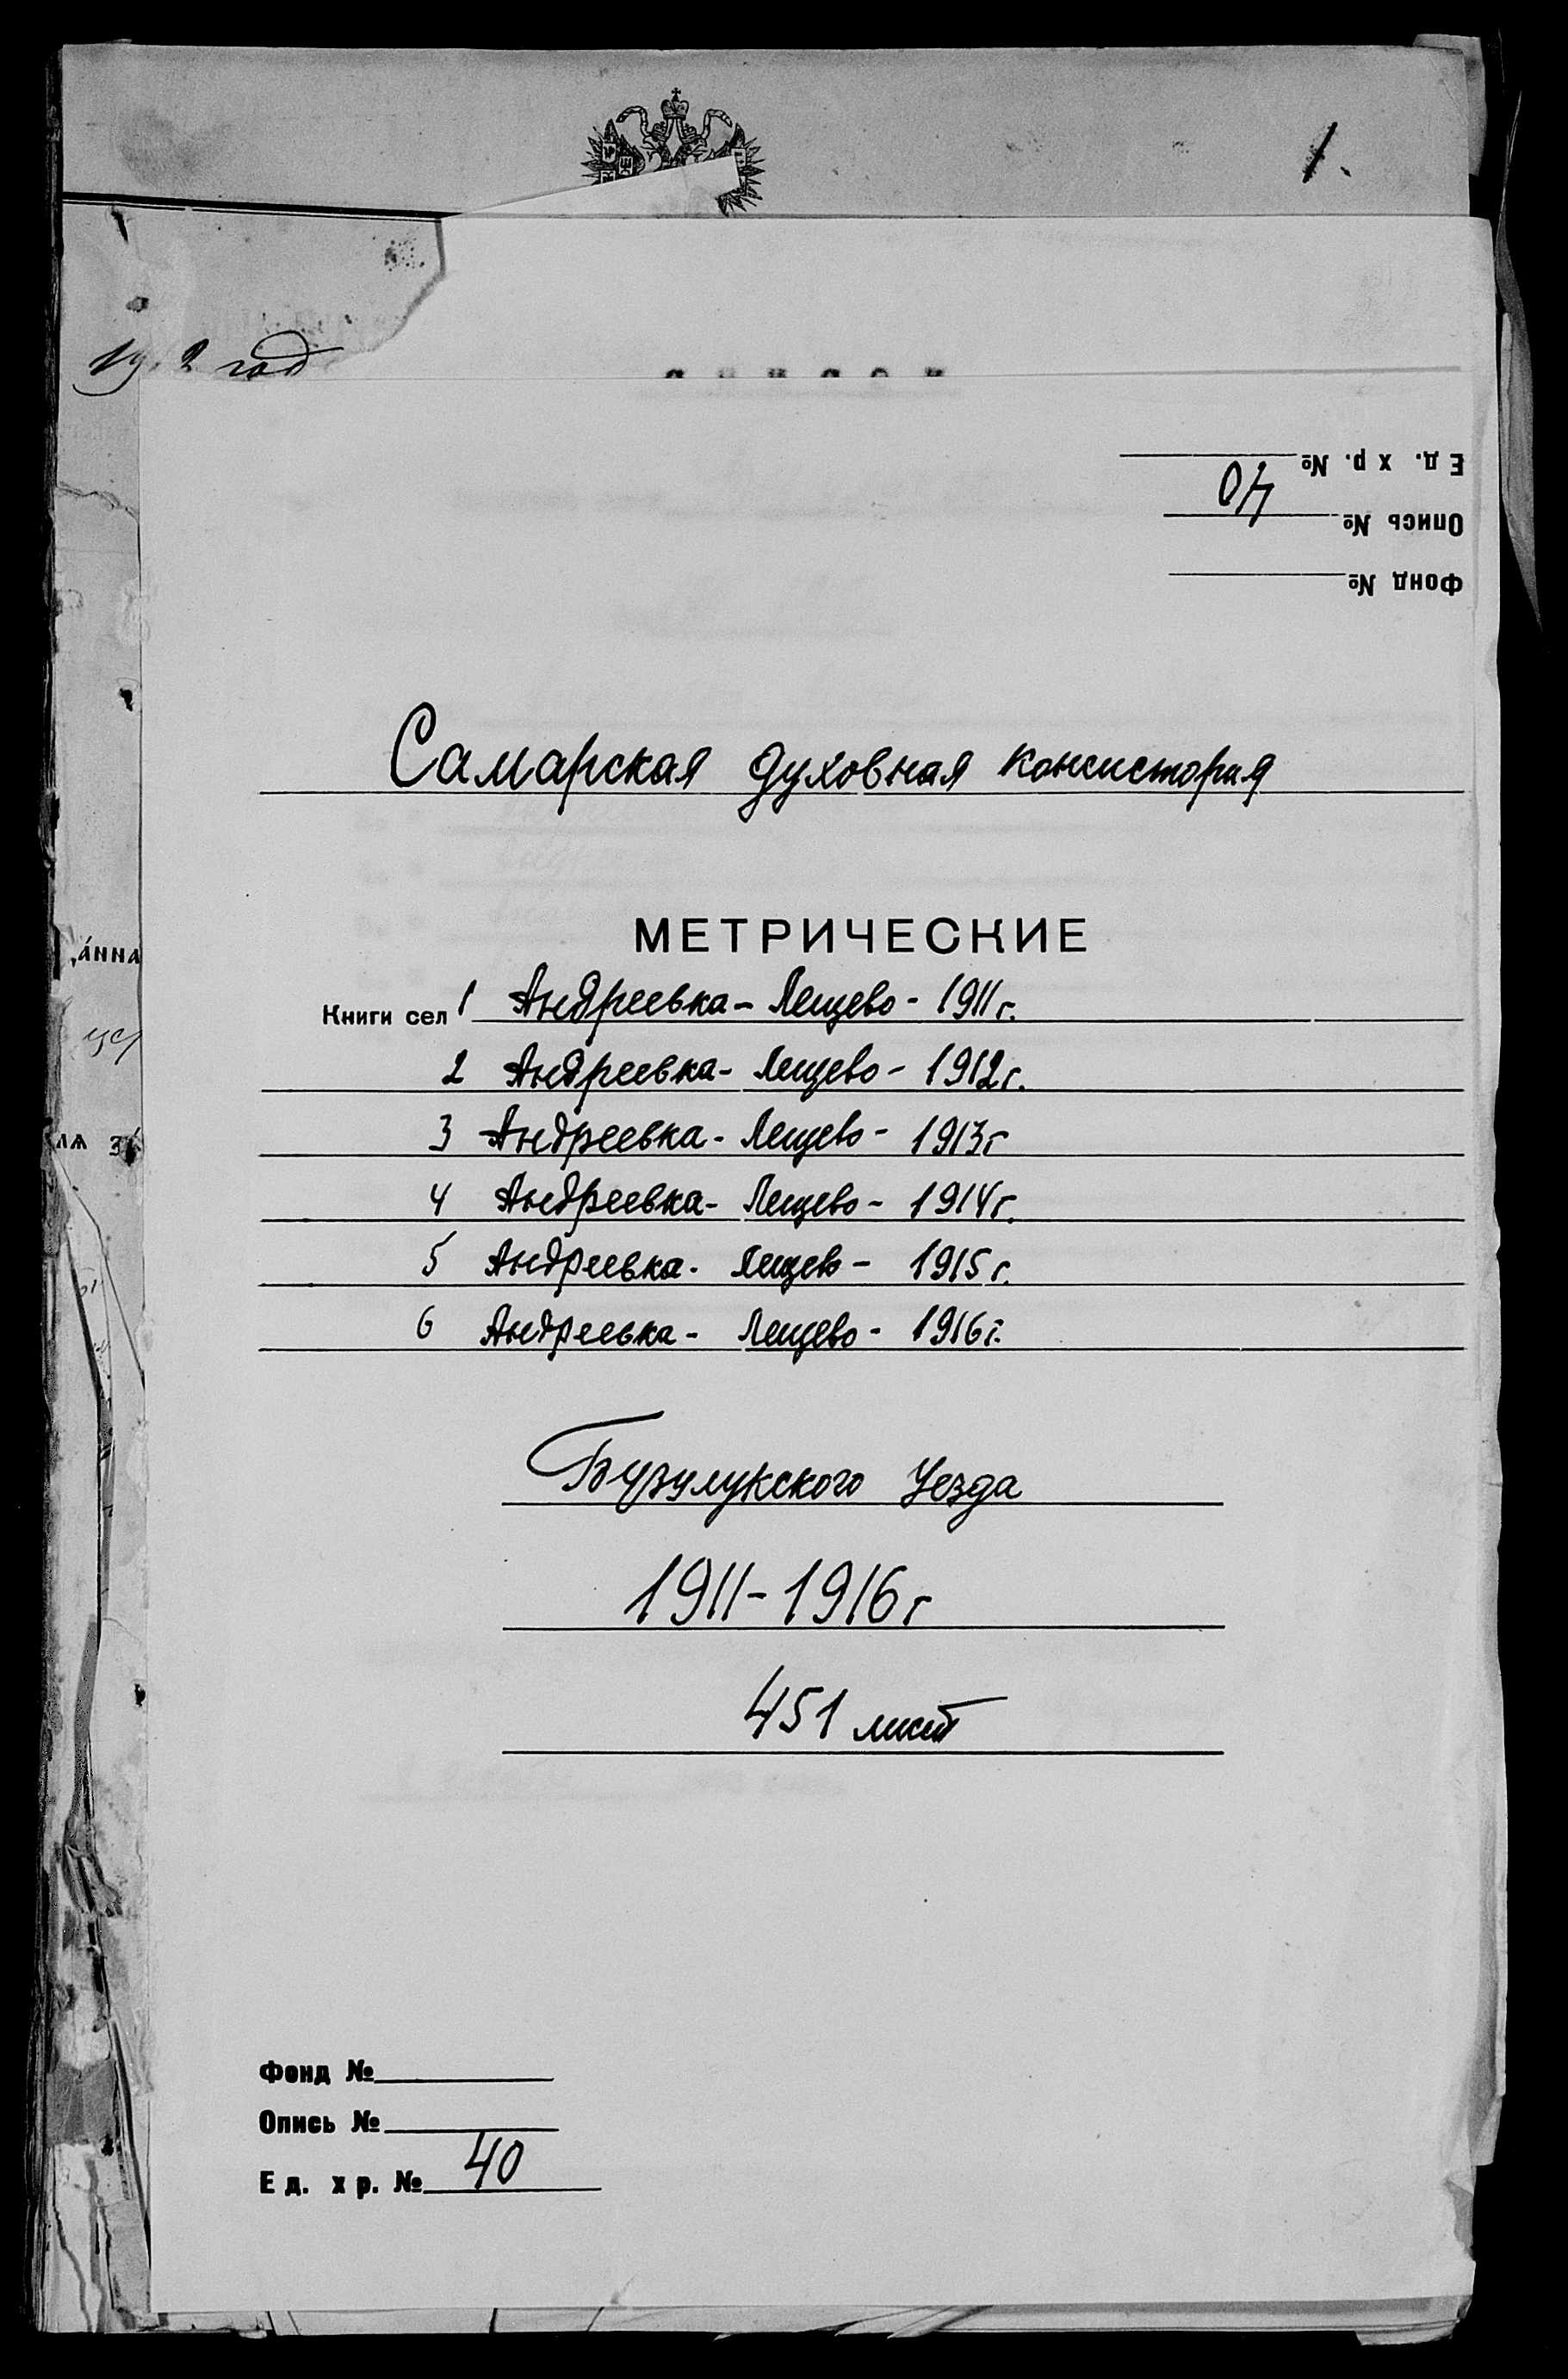 1.
год
Ед. хр. №
Опись № 40
Фонд №
Самарская духовная консистория
МЕТРИЧЕСКИЕ
Книги сел 1 Андреевка - Лещево - 1911 г.
2 Андреевка - Лещево - 1912 г.
3 Андреевка - Лещево - 1913 г
4 Андреевка - Лещево - 1914 г.
5 Андреевка - Лещево - 1915 г.
6 Андреевка - Лещево - 1916 г.
Бузулукского Уезда
1911 - 1916 г
451 лист
Фонд №
Опись №
Ед. хр. № 40